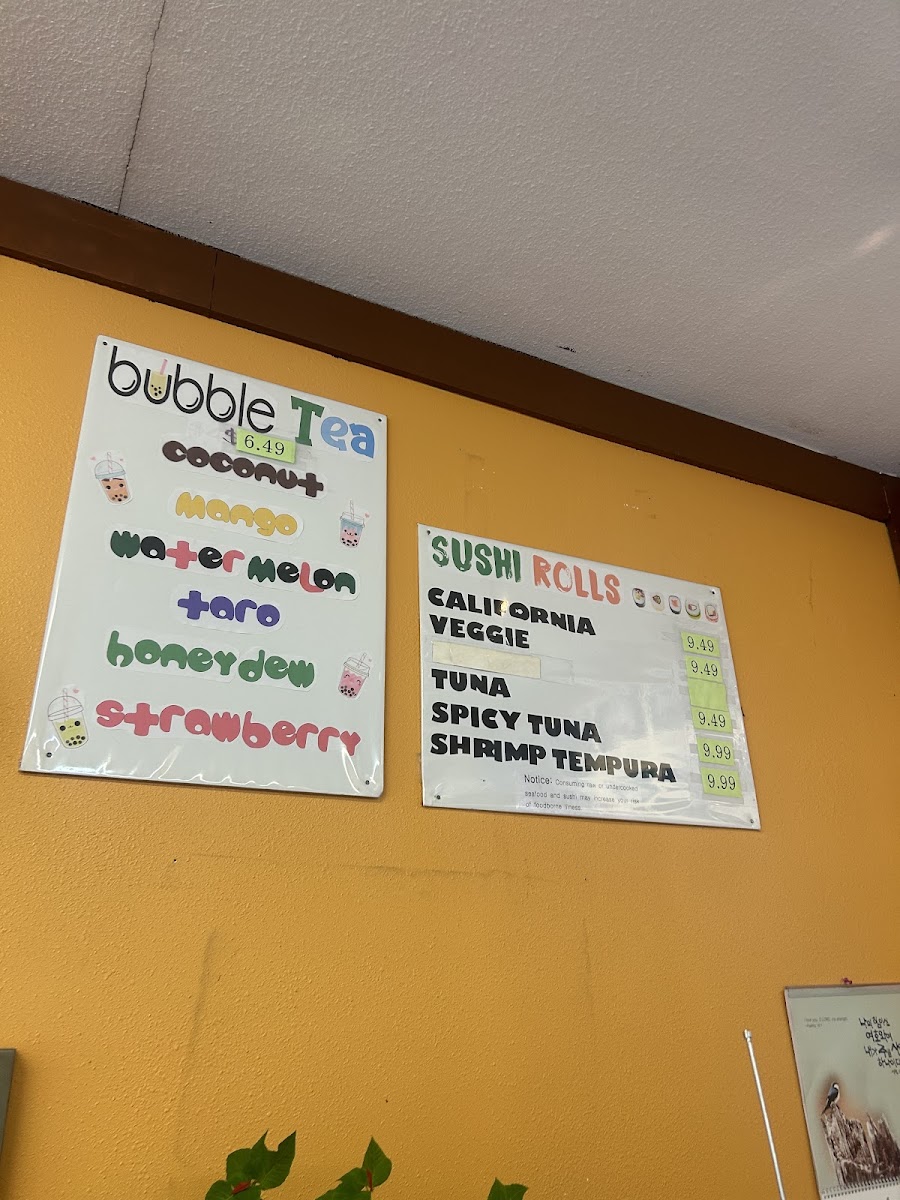 bubble Tea
$ 6.49
coconut
mango
water melon
taro
honeydew
strawberry
SUSHI ROLLS
CALIFORNIA 9.49
VEGGIE 9.49
TUNA 9.49
SPICY TUNA 9.99
SHRIMP TEMPURA 9.99
Notice: Consuming raw or undercooked
seafood and sushi may increase your risk
of foodborne illness.